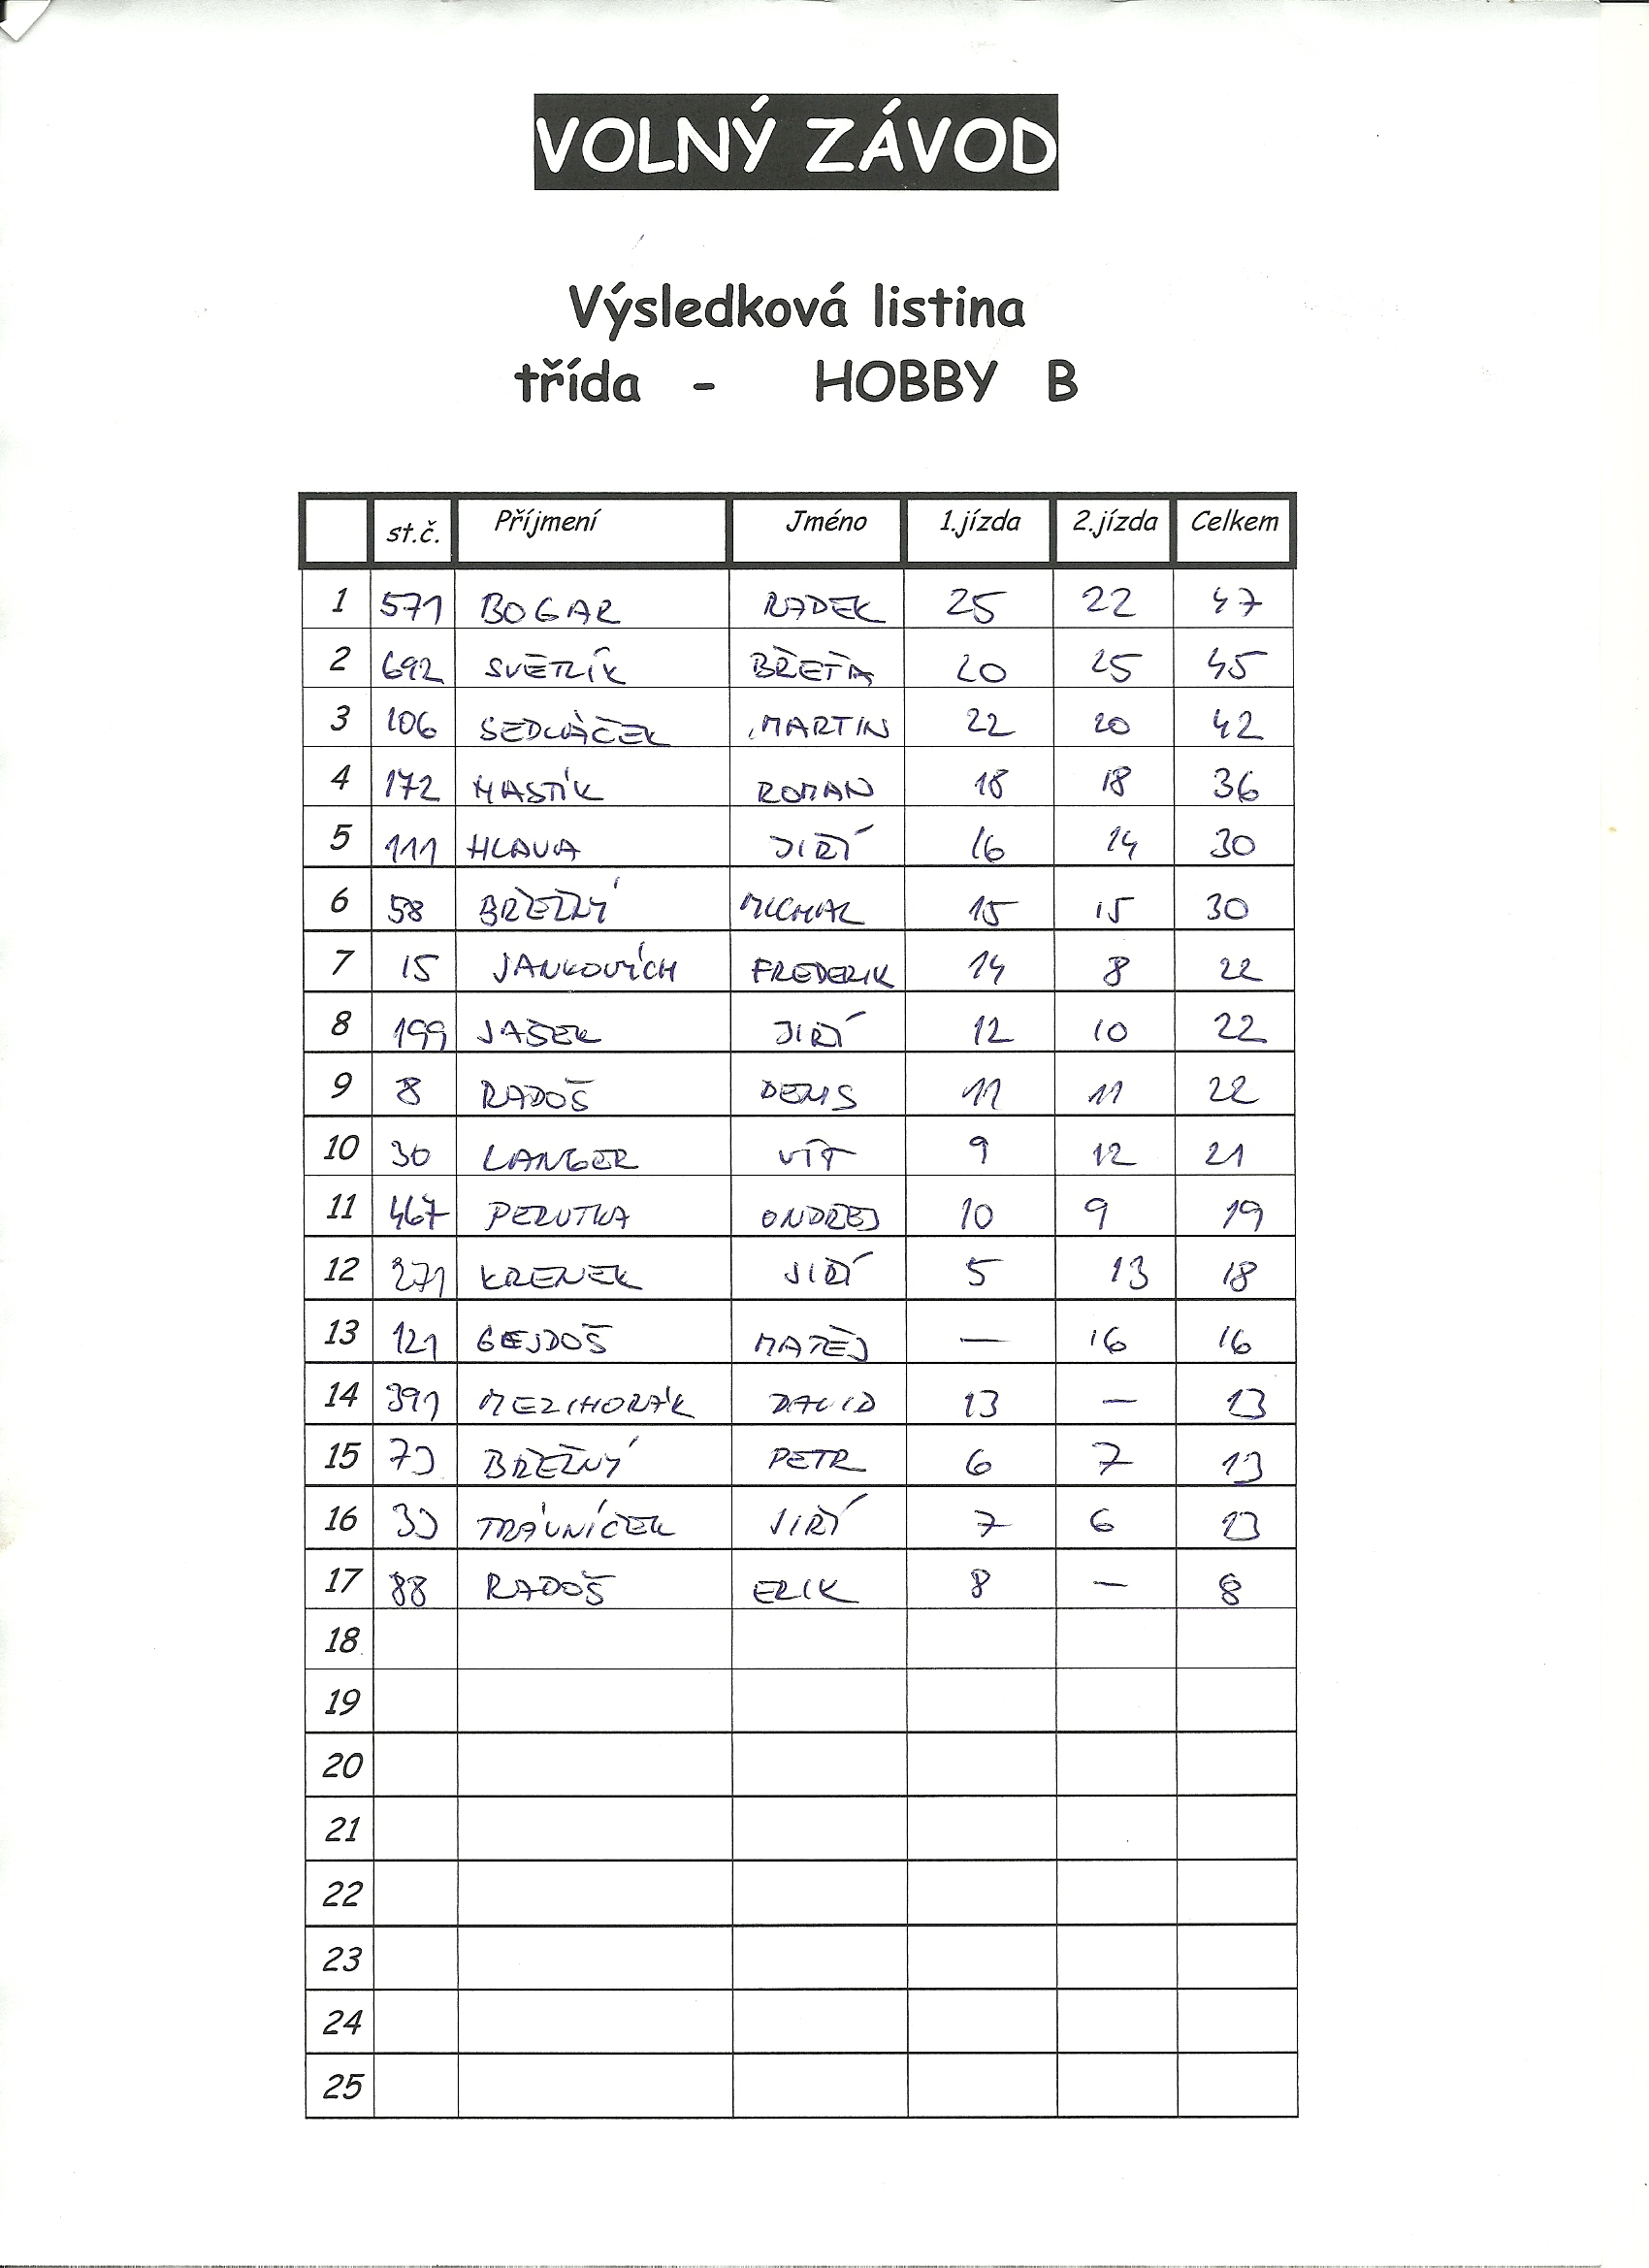 VOLNÝ ZÁVOD
Výsledková listina
třída - HOBBY B
st.č. Příjmení Jméno 1.jízda 2.jízda Celkem
1 571 BOGAR RADEK 25 22 47
2 692 SVĚTLÍK BŘEŤA 20 25 45
3 106 SEDLÁČEK MARTIN 22 20 42
4 172 MASTÍK ROMAN 18 18 36
5 111 HLAVA JIŘÍ 16 14 30
6 58 BŘEZNÝ MICHAL 15 15 30
7 15 JANKOVÍCH FREDERIK 14 8 22
8 199 JAŠEK JIŘÍ 12 10 22
9 8 RADOŠ DENIS 11 11 22
10 30 LANGER VÍT 9 12 21
11 467 PERUTKA ONDŘEJ 10 9 19
12 271 KRENEK JIŘÍ 5 13 18
13 121 GEJDOŠ MATĚJ — 16 16
14 391 MEZIHORÁK DAVID 13 — 13
15 73 BŘEZNÝ PETR 6 7 13
16 33 TRÁVNÍČEK JIŘÍ 7 6 13
17 88 RADOŠ ERIK 8 — 8
18
19
20
21
22
23
24
25